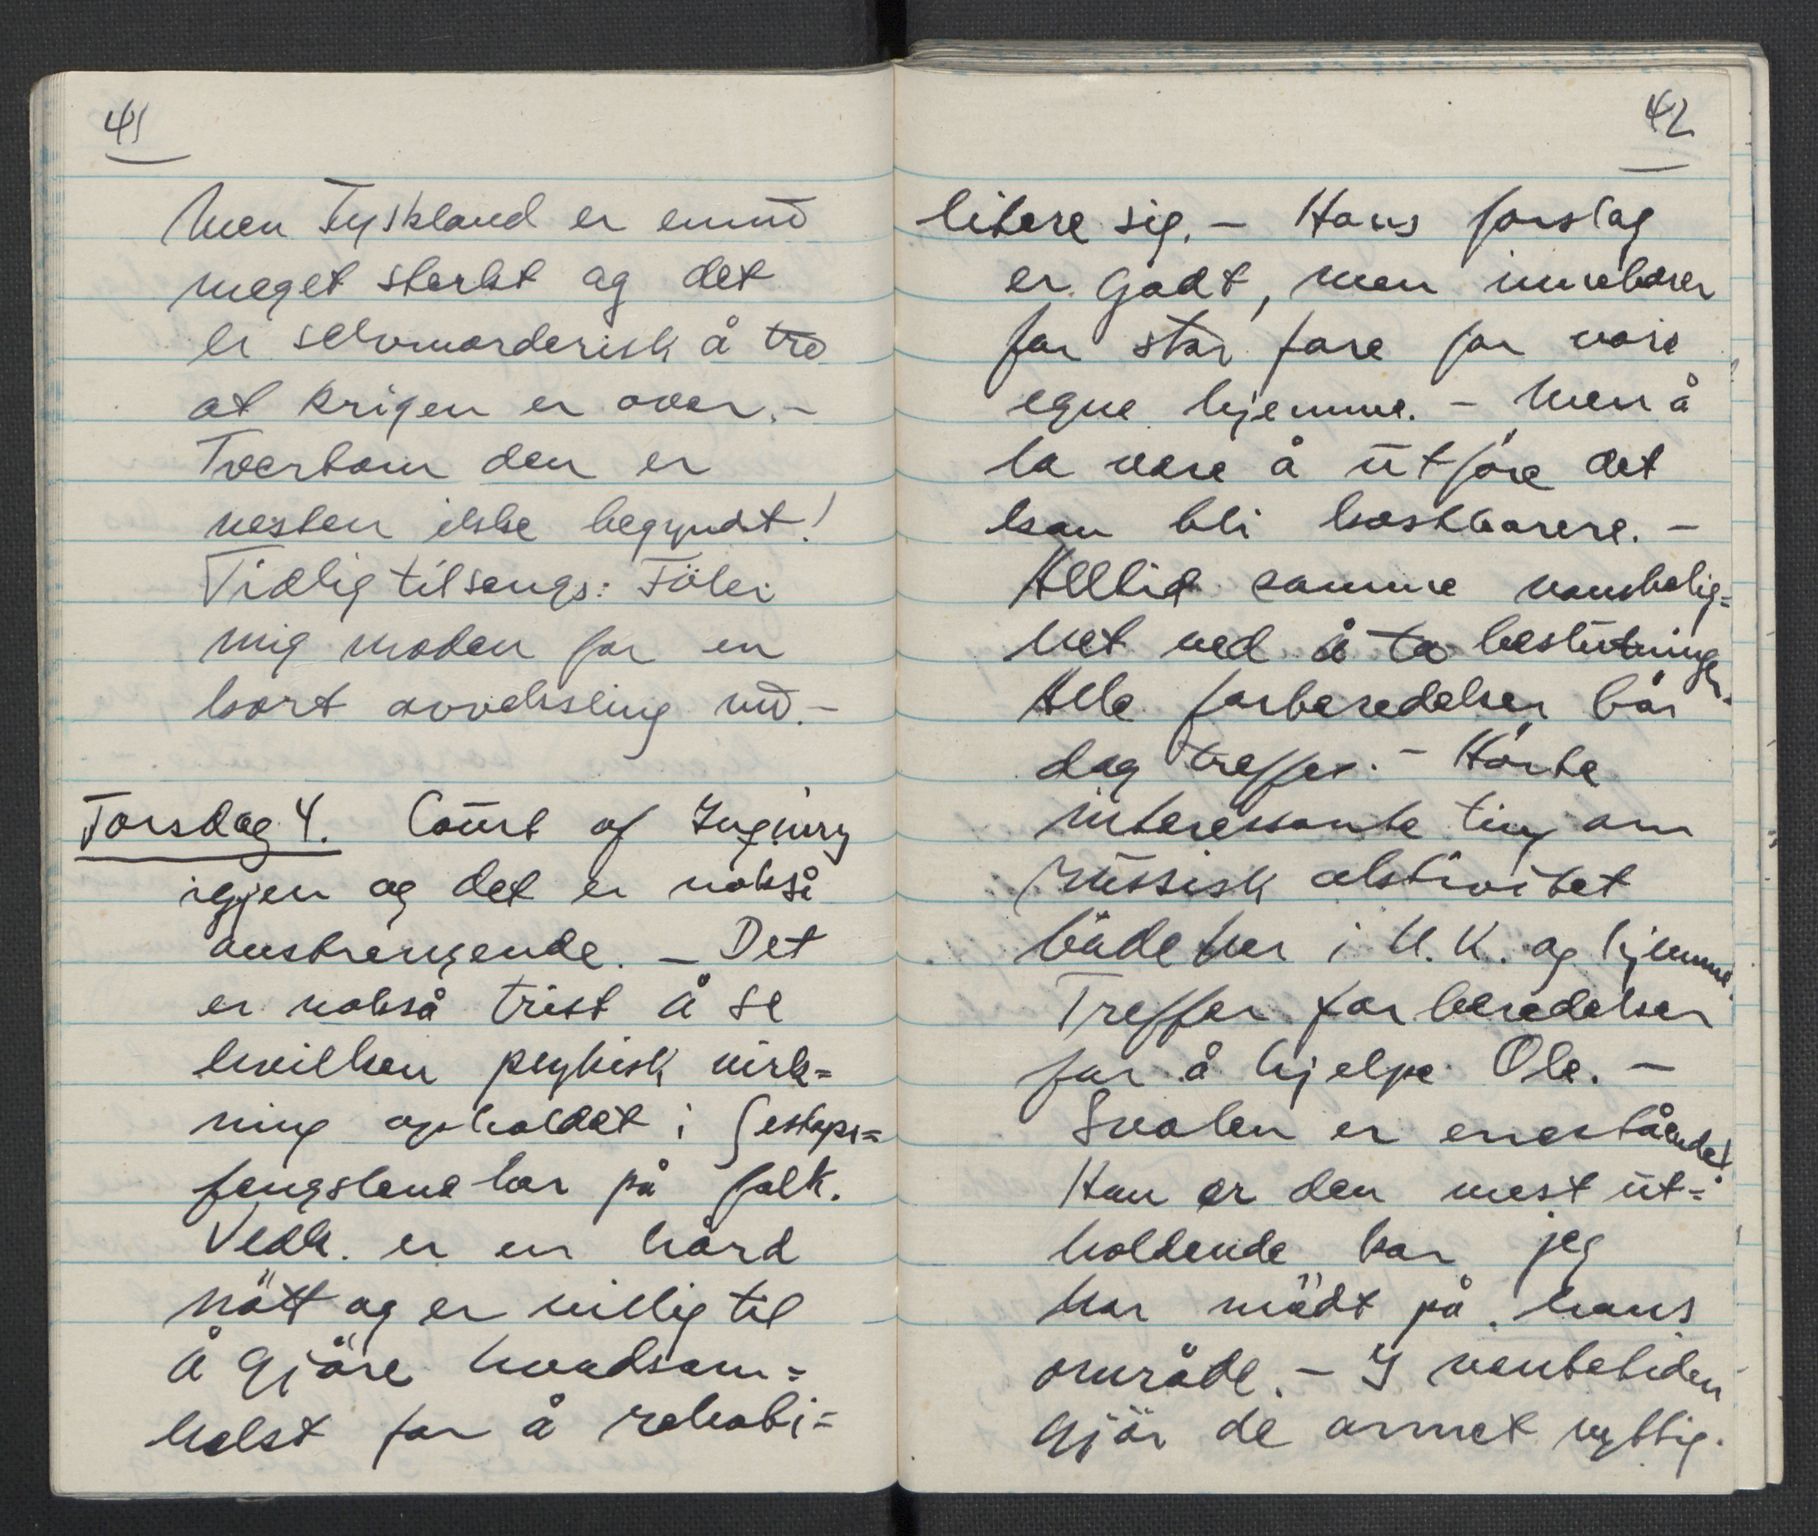 41
Men Tyskland er ennu
meget sterkt og det
er selvmorderisk å tro
at krigen er over. –
Tvertom den er
nesten ikke begyndt!
Tidlig tilsengs: Föler
mig moden for en
kort avveksling nu. –
Torsdag 4. Court of Inquiry
igjen og det er nokså
anstrengende. – Det
er nokså trist å se
hvilken psykisk virk=
ning opholdet i Gestapo=
fengslene har på folk.
Vedk. er en hård
nött og er villig til
å gjöre hvadsom=
helst for å rehabi=
42
litere sig. – Hans forslag
er godt, men innebærer
for stor fare for våre
egne hjemme. – Men å
la være å utföre det
kan bli kostbarere. –
Alltid samme vanskelig=
het ved å ta beslutninger.
Alle forberedelser bör
dog treffes. – Hörte
interessante ting om
russisk aktivitet
både her i U.K. og hjemme.
Treffer forberedelser
for å hjelpe Ole. –
Svalen er enestående!
Han er den mest ut=
holdende kar jeg
har mödt på hans
område. – I ventetiden
gjör de annet nyttig.